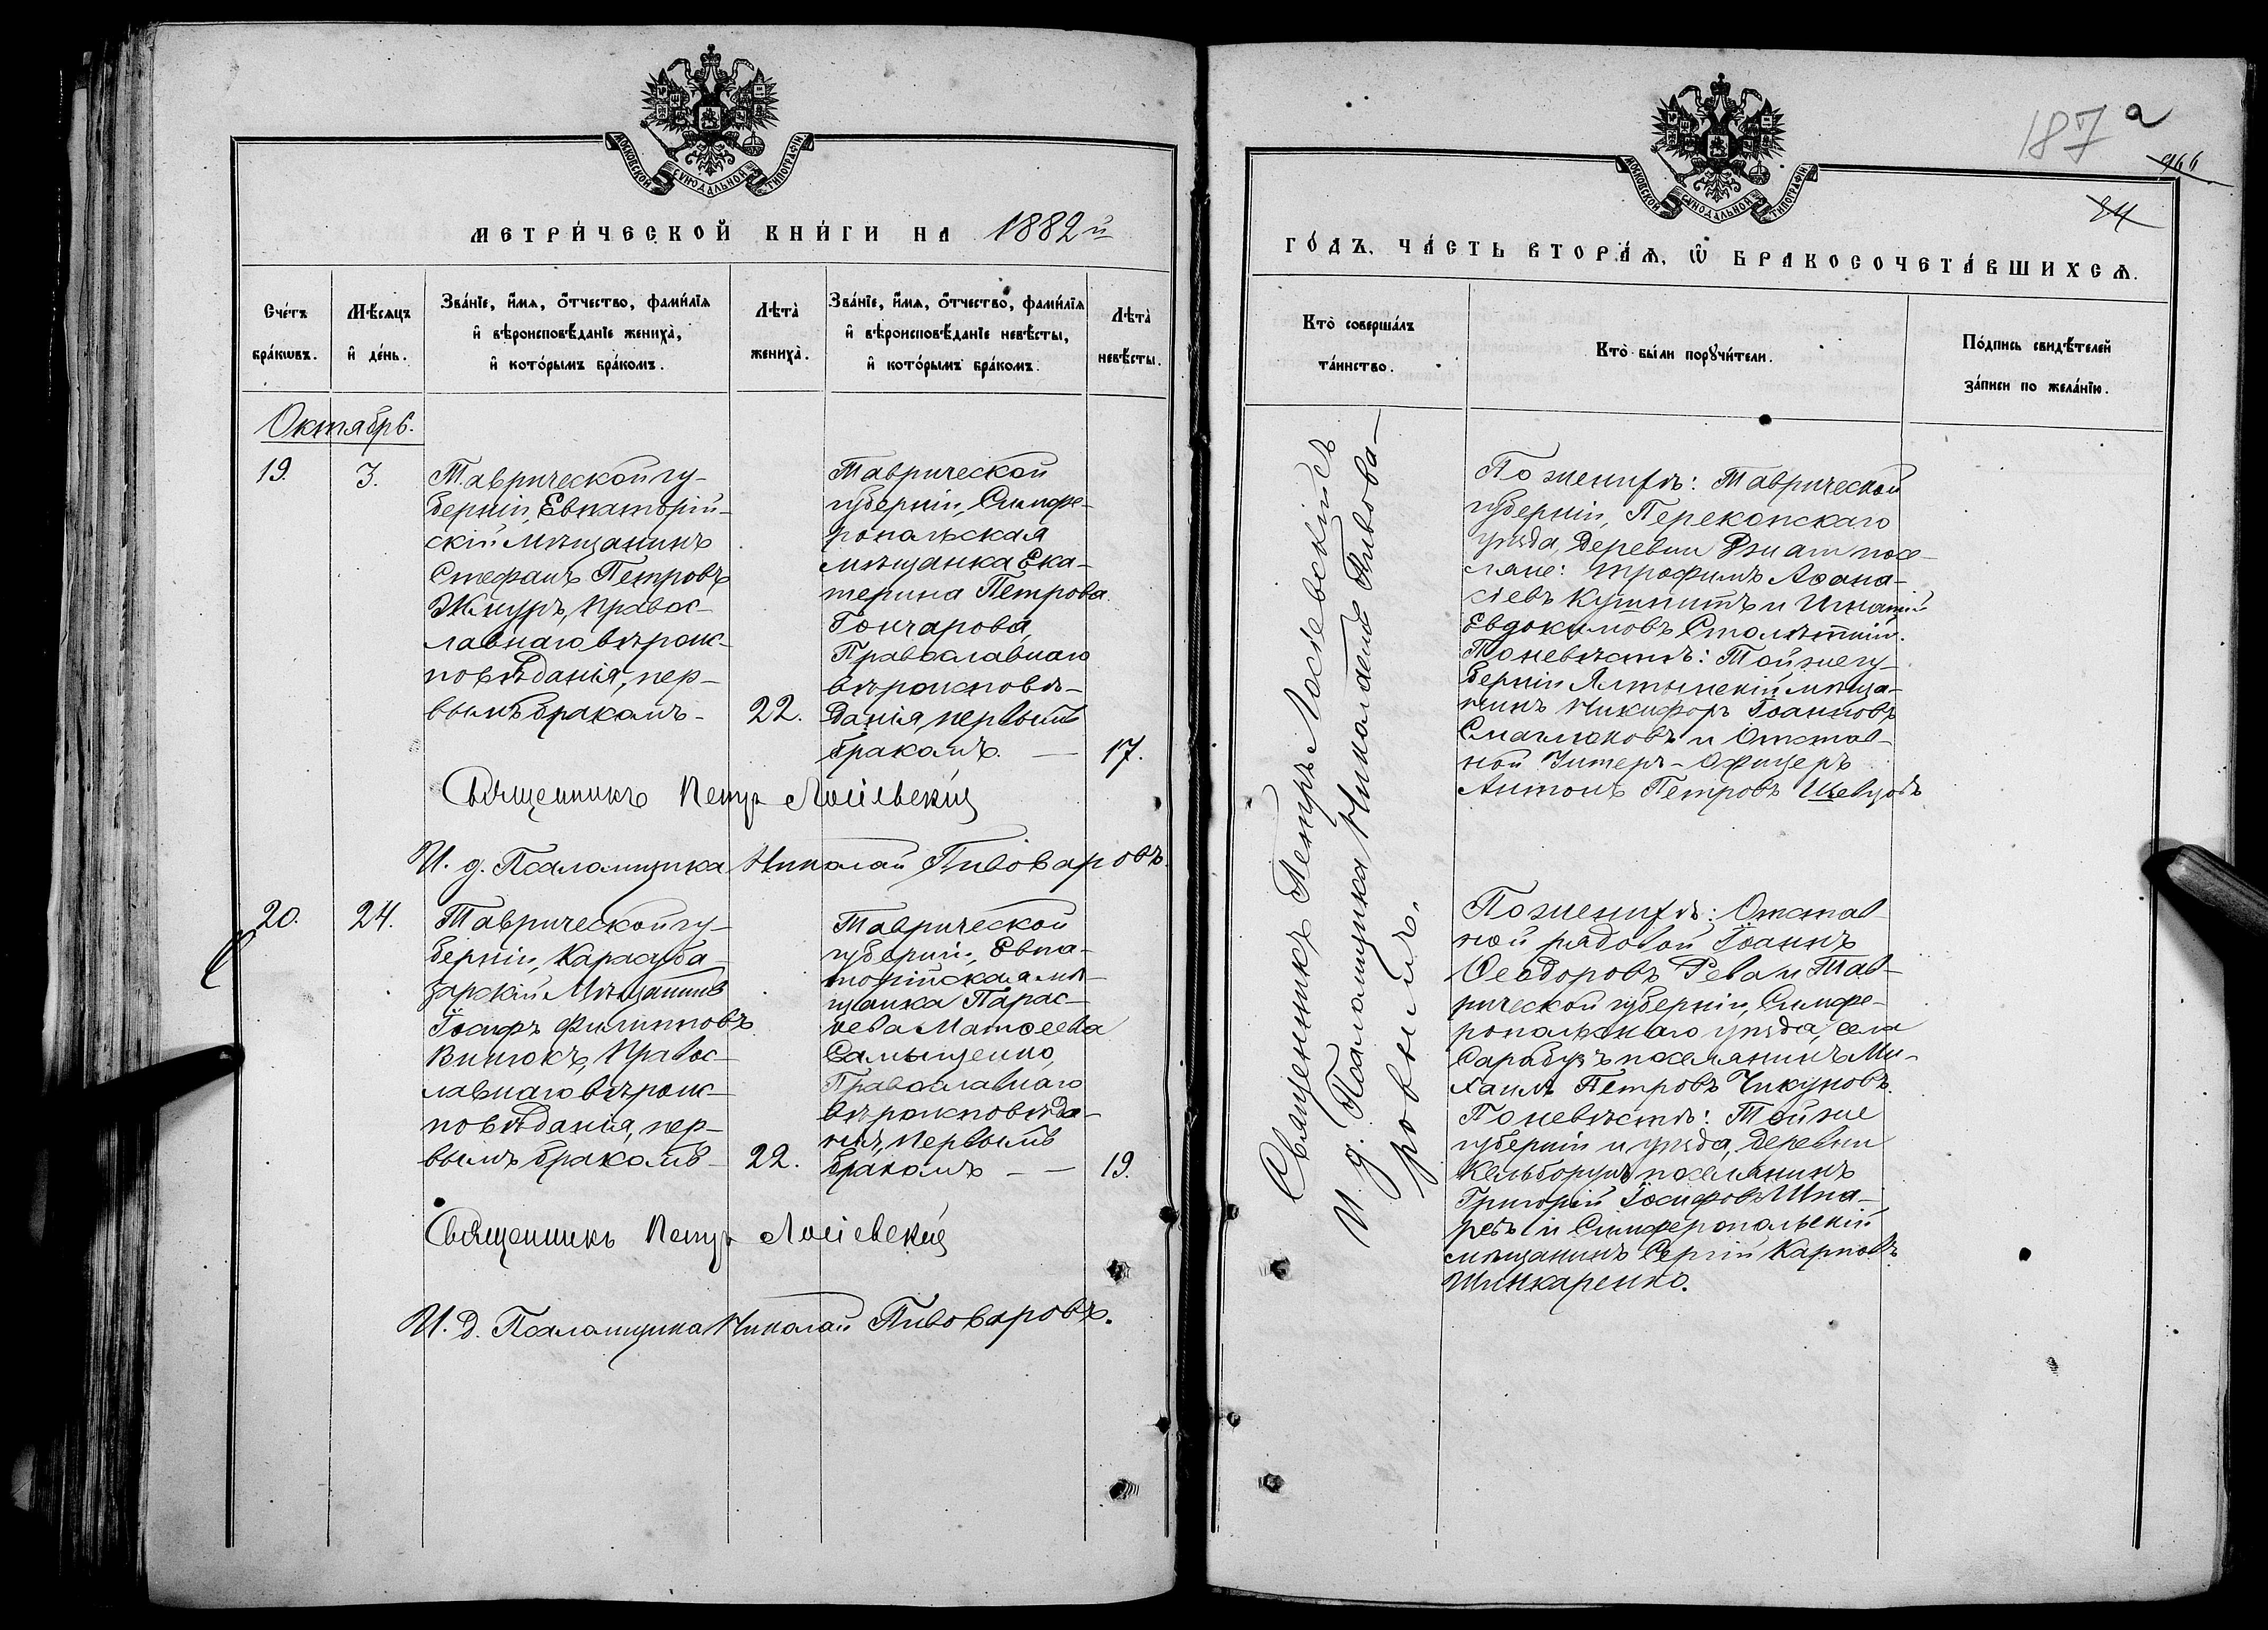 МОСКОВСКОЙ СѴНОДАЛЬНОЙ ТИПОГРАФІИ
МЕТРИ́ЧЕСКОЙ КНИ́ГИ НА 1882й
Сче́тъ бра́кѡвъ.
Мѣ́сяцъ и҆ де́нь.
Зва́нїе, и҆́мя, ѻ҆́тчество, фами́лїя
и҆ вѣроисповѣ́данїе жениха̀,
и҆ кото́рымъ бра́комъ.
Лѣта̀ жениха̀.
Зва́нїе, и҆́мя, ѻ҆́тчество, фами́лїя
и҆ вѣроисповѣ́данїе невѣ́сты,
и҆ кото́рымъ бра́комъ.
Лѣта̀ невѣ́сты.
Октябрь.
19.
3.
Таврической гу-
берніи, Евпаторій-
скій Мѣщанинъ
Стефанъ Петровъ
правос-
лавнаго вѣроис-
повѣданія, пер-
вымъ бракомъ-
22.
Таврической
губерніи, Симфе-
ропольская
мѣщанка Ека-
терина Петрова
Гончарова,
Православнаго
вѣроисповѣ-
данія, первымъ
бракомъ. —
17.
Священникъ Петръ Лосіевскій
И. д. Псаломщика Николай Пивоваровъ.
20.
24.
Таврической гу-
берніи, Карасуба-
зарскій Мѣщанинъ
Іосифъ Филипповъ
Винюкъ, Правос-
лавнаго вѣроис-
повѣданія, пер-
вымъ бракомъ-
22.
Таврической
губерніи, Евпа-
торійская мѣ-
щанка Парас-
кева Матѳеева
Православнаго
вѣроисповѣда-
нія, первымъ
бракомъ — —
19.
Священникъ Петръ Лосіевскій
И. д. Псаломщика Николай Пивоваровъ.
187 а
966
24
МОСКОВСКОЙ СѴНОДАЛЬНОЙ ТИПОГРАФІИ
ГО́ДЪ, ЧА́СТЬ ВТОРА́Ѧ, Ѽ БРАКОСОЧЕТА́ВШИХСѦ.
Кто̀ соверша́лъ
та́инство.
Кто̀ бы́ли порꙋчи́тели.
По́дпись свидѣ́телей
за́писи по жела́нїю.
Священникъ Петръ Лосіевскій съ
И. д. Псаломщика Николаемъ Пивова-
ровымъ.
По женихѣ: Таврической
губерніи, Перекопскаго
уѣзда, деревни посе-
ляне: Трофимъ Аѳана-
сіевъ и Игнатій
Евдокимовъ Столѣтній.
По невѣстѣ: Той же гу-
берніи Ялтинскій мѣща-
нинъ Никифоръ Іоанновъ
и Отстав-
ной Унтеръ-Офицеръ
Антонъ Петровъ Шевцовъ
По женихѣ: Отстав-
ной рядовой Іоаннъ
Ѳеодоровъ Рева и Тав-
рической губерніи, Симфе-
ропольскаго уѣзда, села
Сарабузъ поселянинъ Ми-
хаилъ Петровъ Чикуновъ.
По невѣстѣ: Той же
губерніи и уѣзда, деревни
поселянинъ
Григорій Іосифовъ Шпа-
ревъ и Симферопольскій
мѣщанинъ Сергій Карповъ
Шинкаренко.